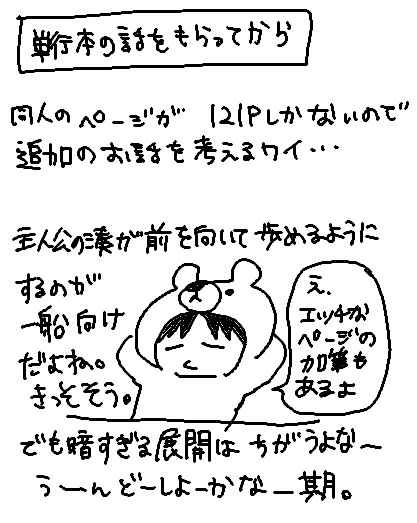 単行本の話をもらってから
同人のページが 121Pしかないので
追加のお話を考えるワイ…
主人公の湊が前を向いて歩めるように
するのが
一船向け
だよね。
きっそそう。
え、
エッチな
ページの
加筆も
あるよ
でも暗すぎる展開はちがうよな〜
うーんど〜しよーかな一期。